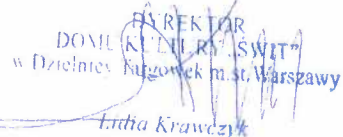 DYREKTOR
DOMU KULTURY „ŚWIT”
w Dzielnicy Targówek m.st. Warszawy
Lidia Krawczyk